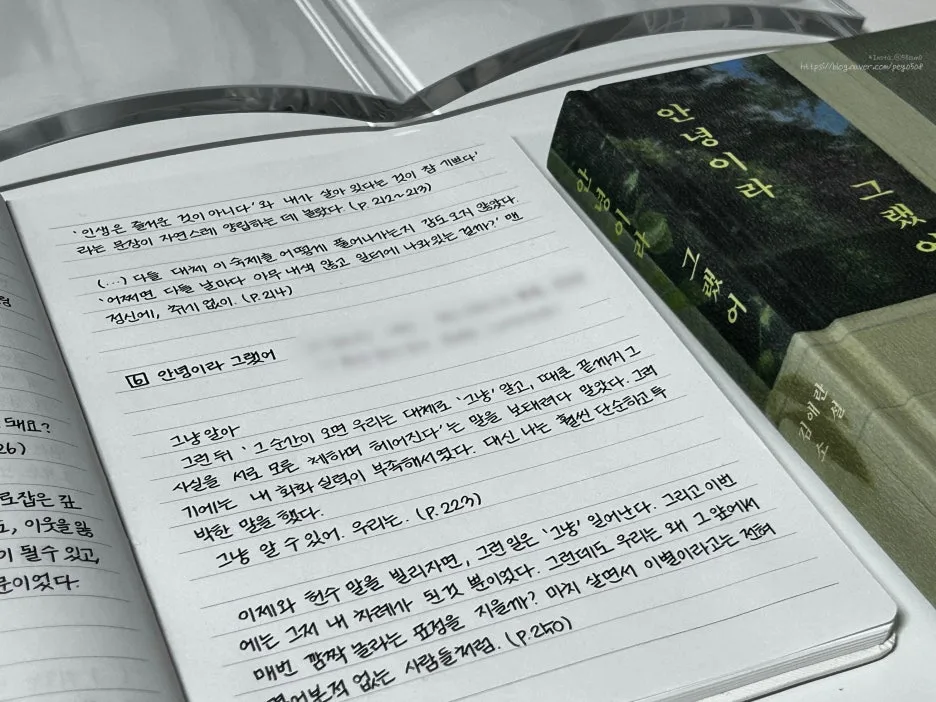 *Insta. @
https://blog.naver.com/pey0508
'인생은 즐거운 것이 아니다'와 내가 살아 있다는 것이 참 기쁘다'
라는 문장이 자연스레 양립하는 데 놀랐다. (p. 212~213)
(...) 다들 대체 이 숙제를 어떻게 풀어나가는지 감도 오지 않았다.
'어쩌면 다들 날마다 아무 내색 않고 일터에 나와있는 걸까?' 맨
정신에, 취기 없이. (p.214)
6 안녕이라 그랬어
그냥 알아
그런 뒤 '그 순간이 오면 우리는 대체로 '그냥' 알고, 때론 끝까지 그
사실을 서로 모른 체하며 헤어진다'는 말을 보태려다 말았다. 그러
기에는 내 회화 실력이 부족해서였다. 대신 나는 훨씬 단순하고 투
박한 말을 했다.
그냥 알 수 있어. 우리는. (p.223)
이제와 헌수 말을 빌리자면, 그런 일은 '그냥' 일어난다. 그리고 이번
에는 그저 내 차례가 된 것 뿐이었다. 그런데도 우리는 왜 그 앞에서
매번 깜짝 놀라는 표정을 지을까? 마치 살면서 이별이라고는 전혀
겪어본적 없는 사람들처럼. (p.250)
돼요?
26)
로잡은 값
, 이웃을 잃
이 될 수 있고,
이었다.
안녕이라
그랬어
안녕이라
그랬어
김애란
소설